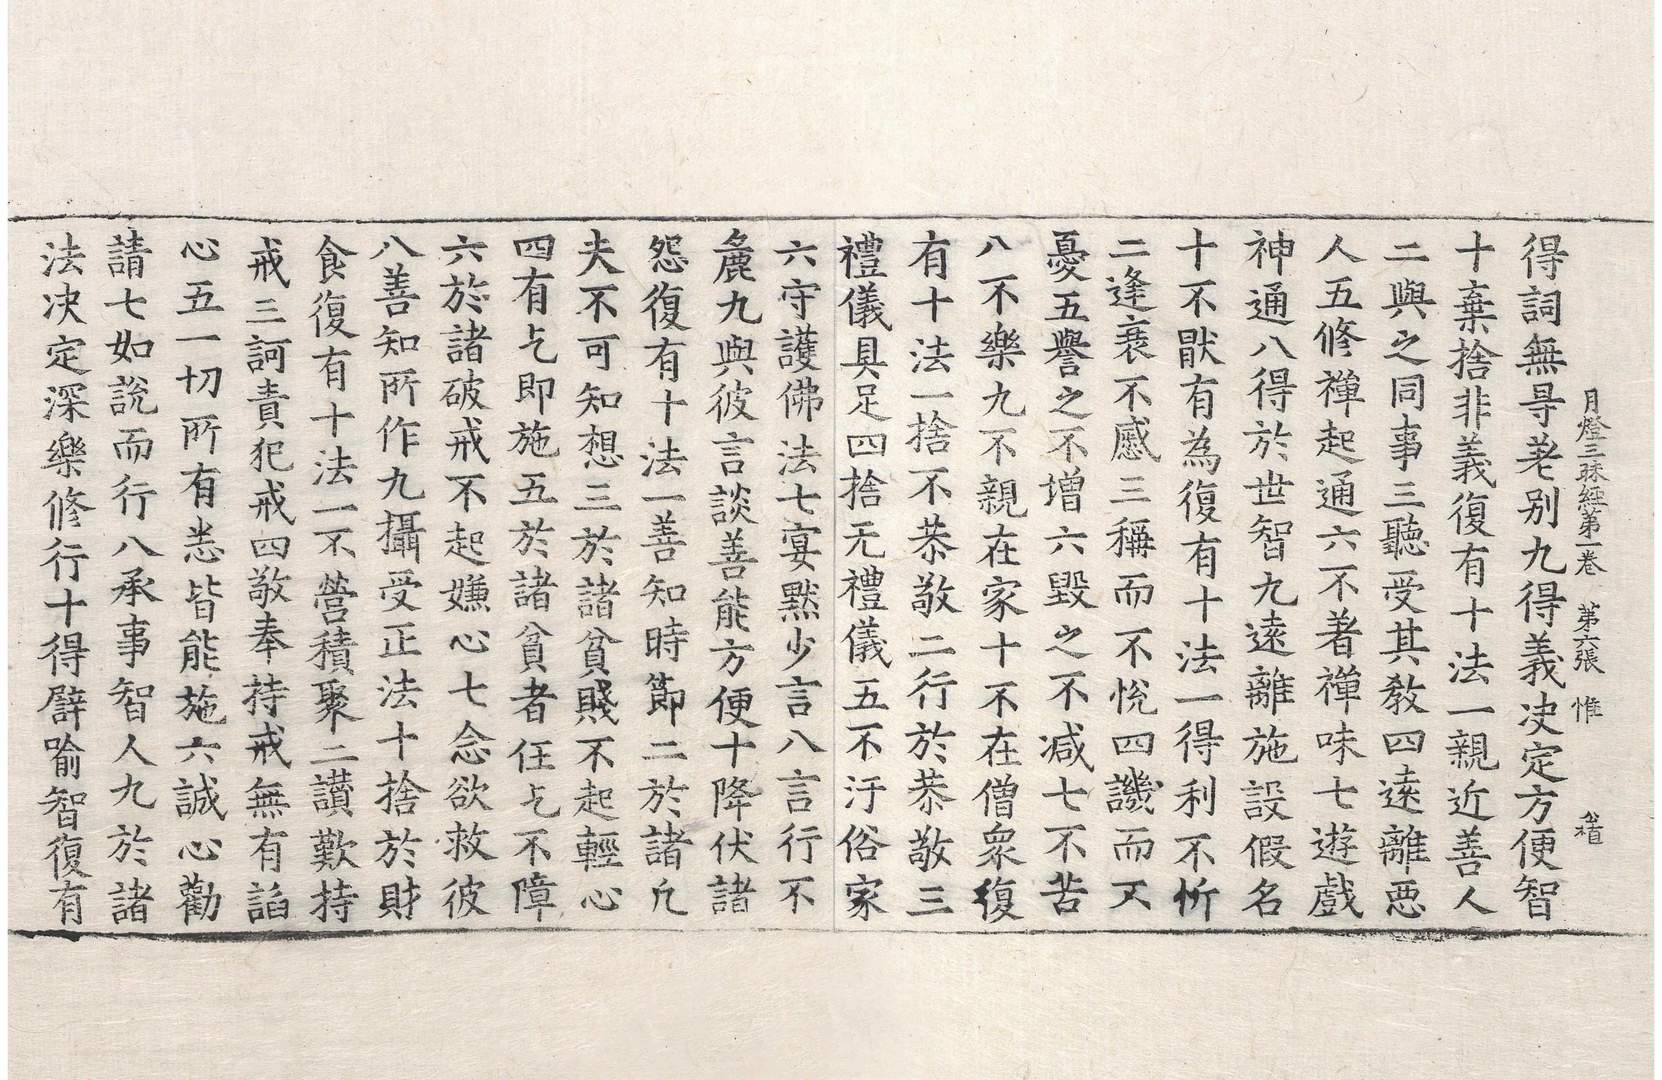 月燈三昧經第一卷　第六張　惟
得詞無㝵差別九得義決定方便智
十棄捨非義復有十法一親近善人
二與之同事三聽受其教四遠離惡
人五修禪起通六不著禪味七遊戲
神通八得於世智九遠離施設假名
十不猒有為復有十法一得利不忻
二逢衰不慼三稱而不悅四譏而不
憂五譽之不增六毀之不減七不苦
八不樂九不親在家十不在僧眾復
有十法一捨不恭敬二行於恭敬三
禮儀具足四捨无禮儀五不汙俗家
六守護佛法七宴默少言八言行不
麁九與彼言談善能方便十降伏諸
怨復有十法一善知時節二於諸凡
夫不可知想三於諸貧賤不起輕心
四有乞即施五於諸貧者任乞不障
六於諸破戒不起嫌心七念欲救彼
八善知所作九攝受正法十捨於財
食復有十法一不營積聚二讃歎持
戒三訶責犯戒四敬奉持戒無有諂
心五一切所有悉皆能施六誠心勸
請七如說而行八承事智人九於諸
法決定深樂修行十得譬喻智復有